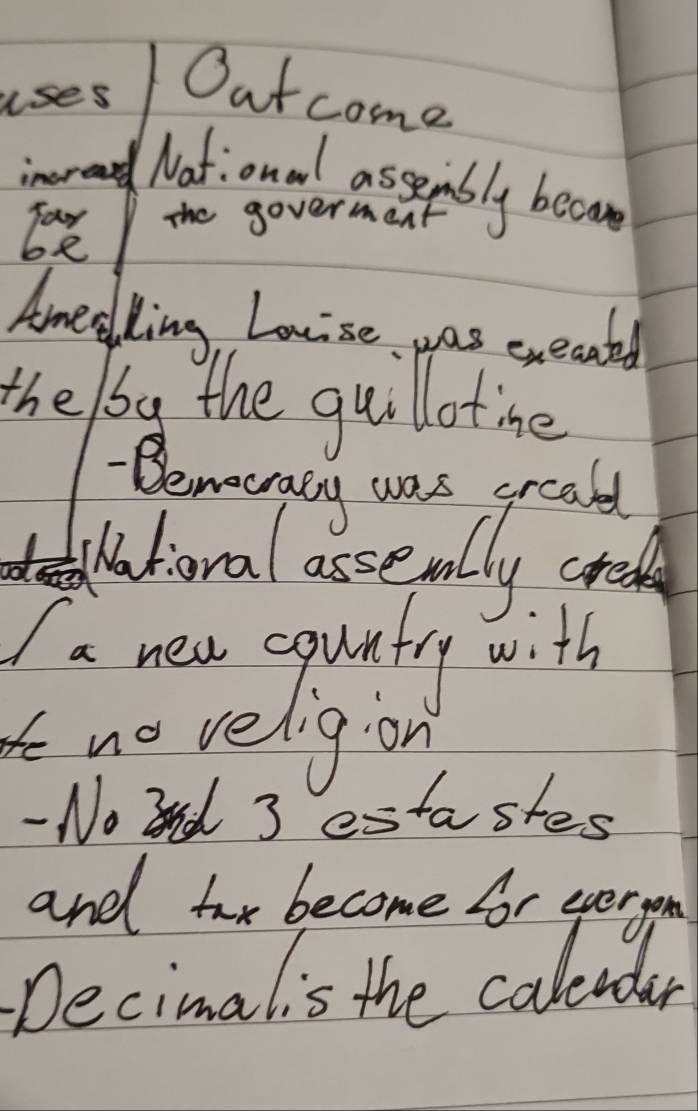 uses Outcome
increased National assembly became
Tax the goverment
be
Amer King Louise was executed
the by the guillotine
- Democracy was creatd
National assembly created
a new country with
te no religion
- No 3 estastes
and tax become for everyone
- Decimalis the calendar